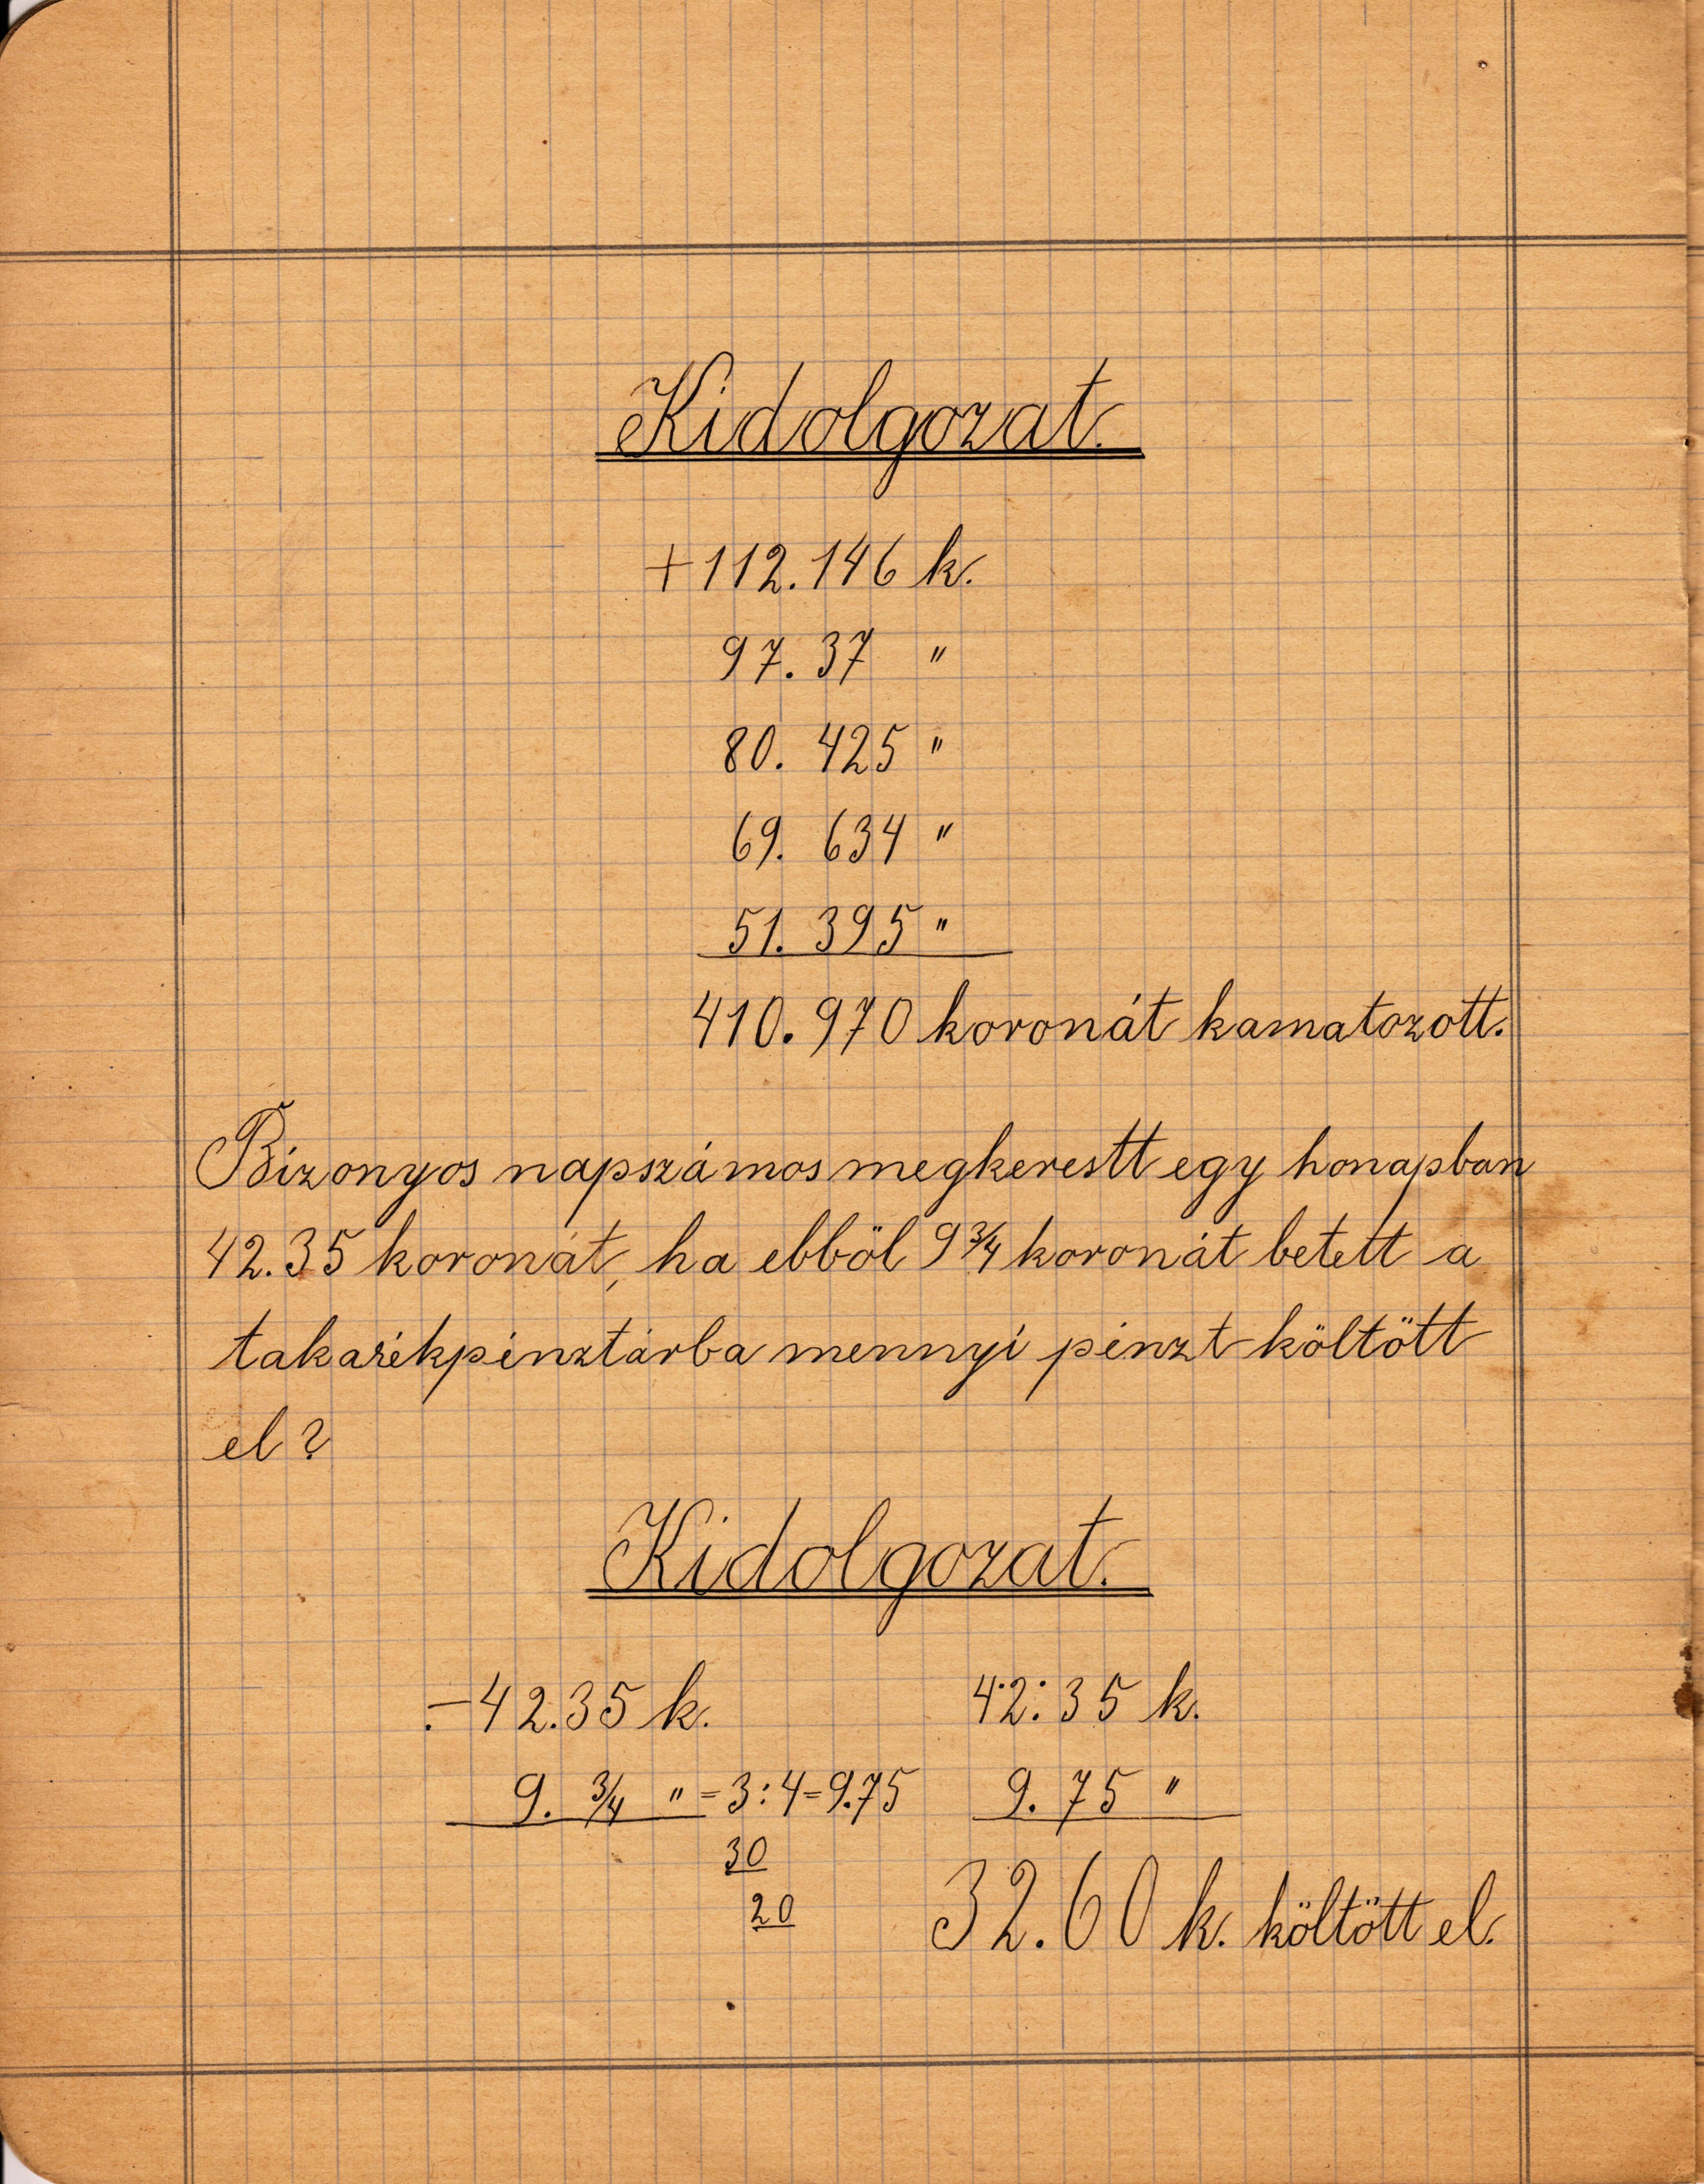 Kidolgozat.
+112.146 k.
97.37 "
80.425 "
69.634 "
51.395 "
410.970 koronát kamatozott.
Bizonyos napszámos megkerestt egy honapban
42.35 koronát, ha ebböl 9 3/4 koronát betett a
takarékpénztárba mennyi pénzt költött
el?
Kidolgozat.
-42.35 k. 42:35 k.
9. 3/4 " = 3:4=9.75 9.75 "
30
20 32.60 k. költött el.